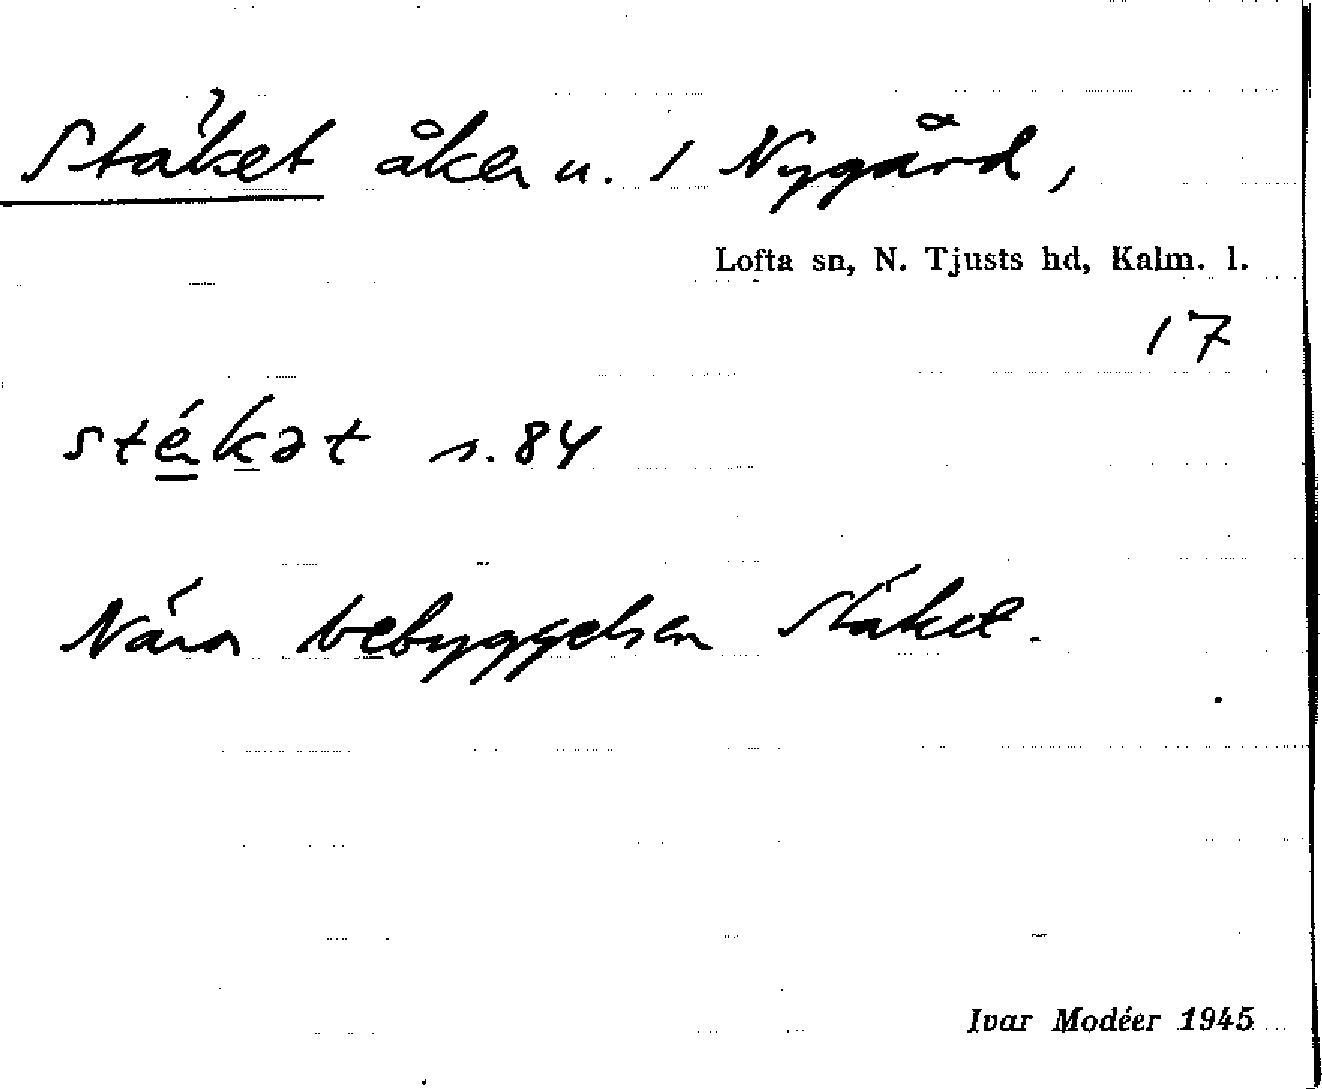 Stäket åker u. 1 Nygård,
Lofta sn, N. Tjusts hd, Kalm. l.
17
stékət s. 84
Nära bebyggelsen Stäket.
Ivar Modéer 1945